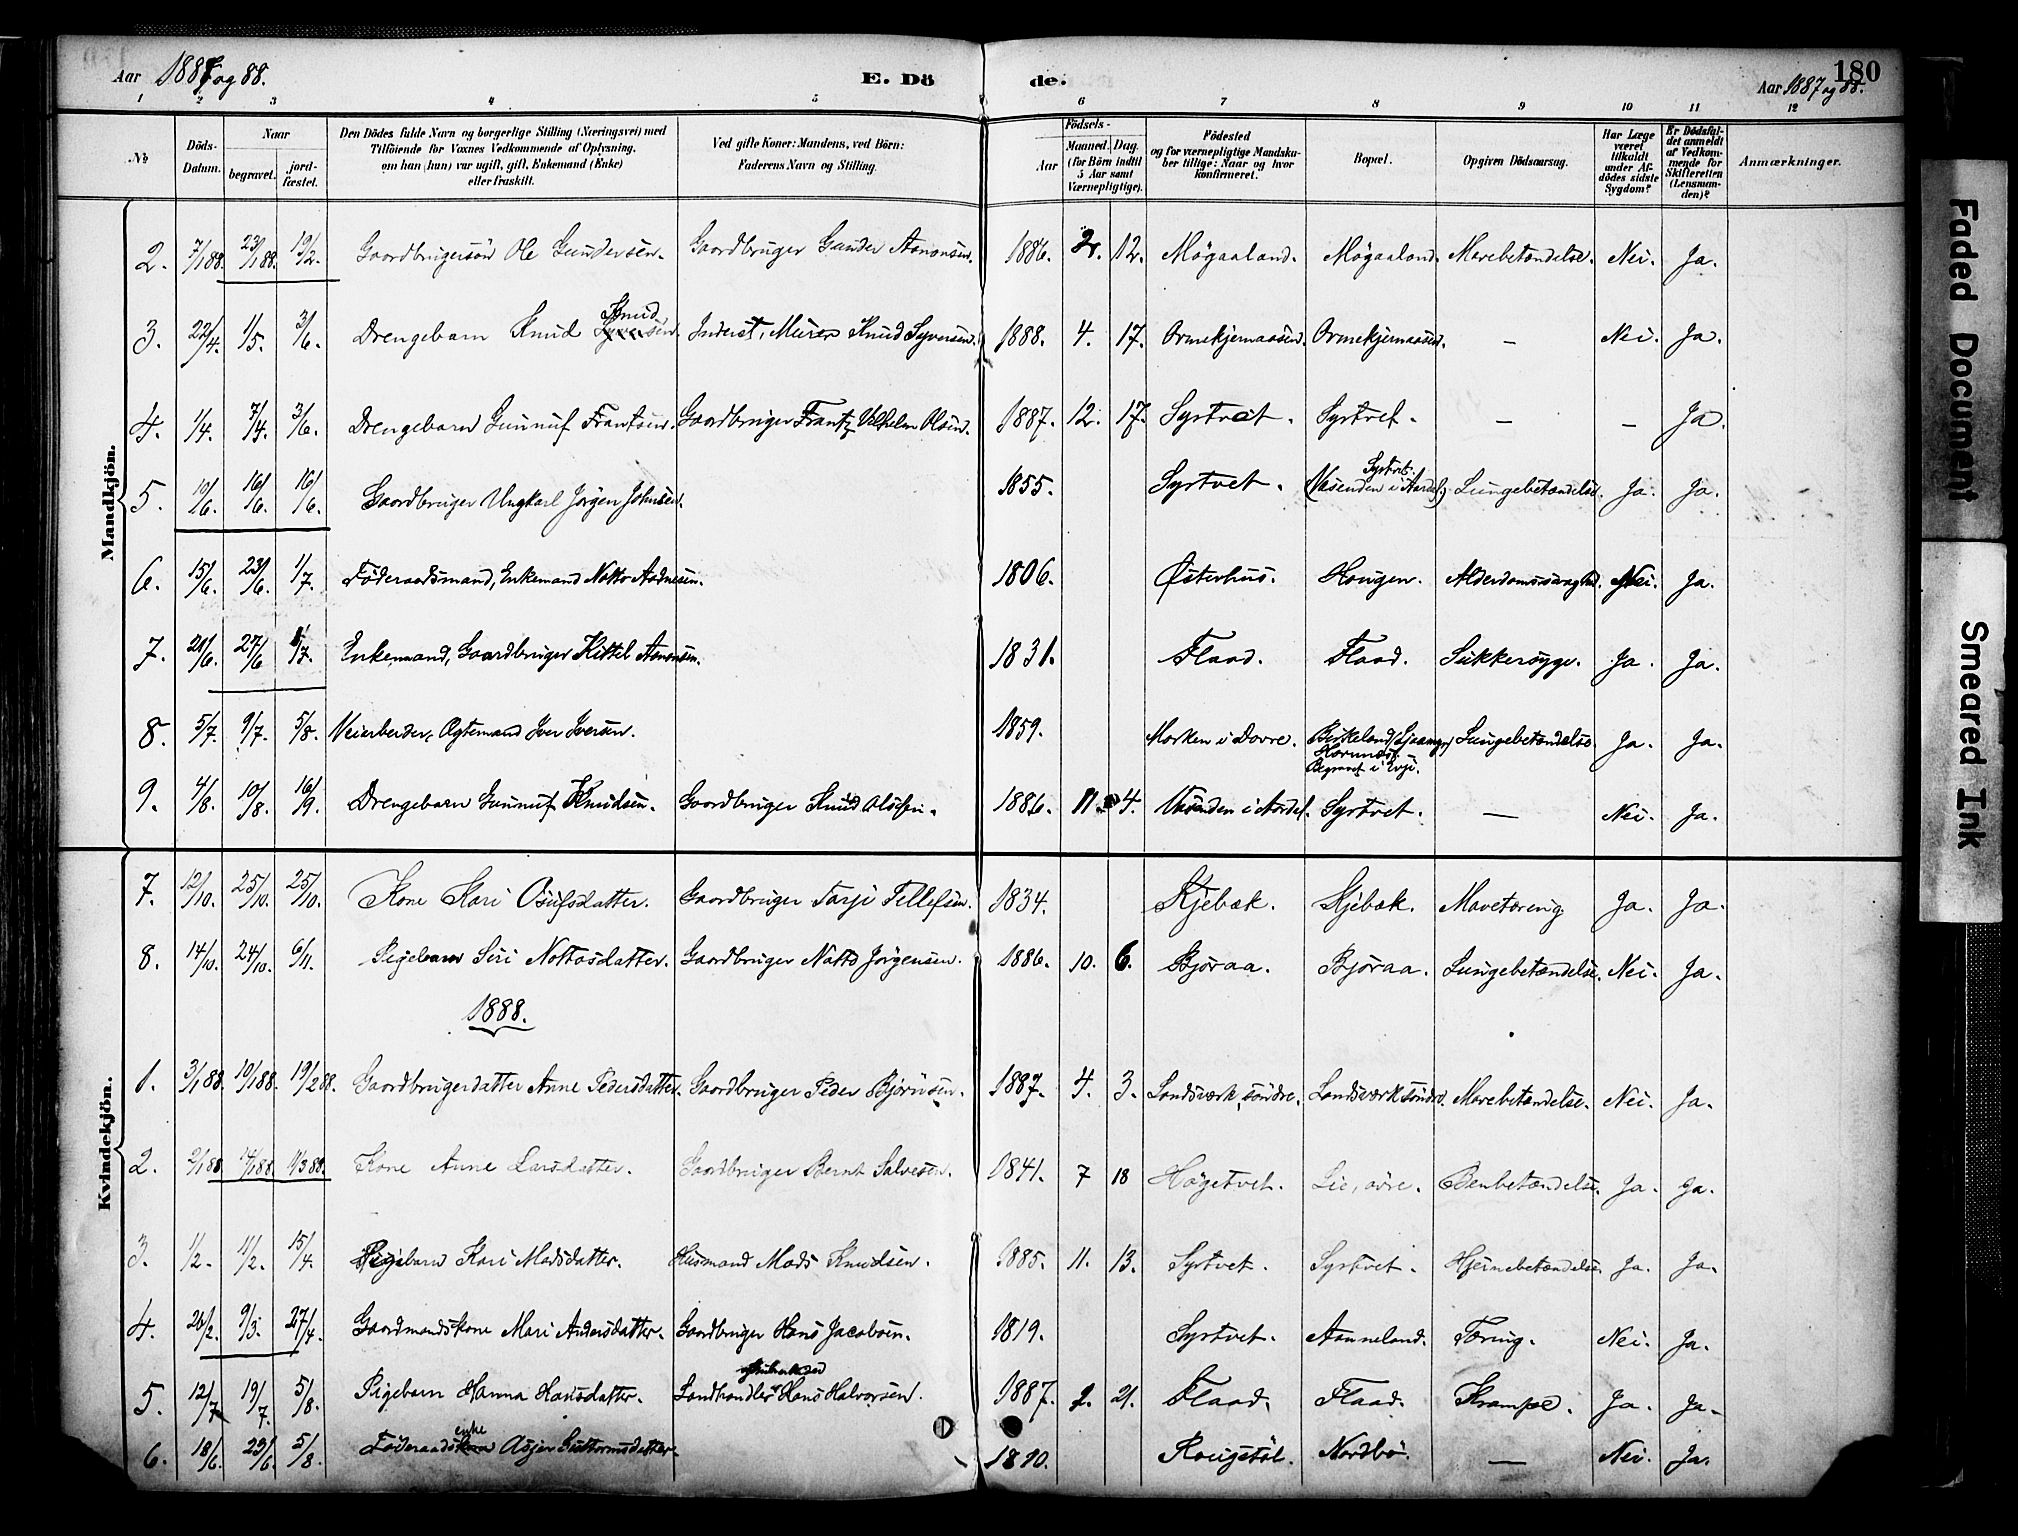 Aar 1887 og 88. E. Dö de. Aar 1887 og 88. 180
1 2 3 4 5 6 7 8 9 10 11 12
No Döds-Datum. Naar begravet. jordfæstet. Den Dödes fulde Navn og borgerlige Stilling (Næringsvei) med Tilföiende for Voxnes Vedkommende af Oplysning, om han (hun) var ugift, gift, Enkemand (Enke) eller fraskilt. Ved gifte Koner: Mandens, ved Börn: Faderens Navn og Stilling. Födsels- Aar Maaned. Dag. (for Börn indtil 5 Aar samt Værnepligtige). Födested og for værnepligtige Mandskaber tillige: Naar og hvor konfirmeret. Bopæl. Opgiven Dödsaarsag. Har Læge været tilkaldt under Afdödes sidste Sygdom? Er Dödsfaldet anmeldt af Vedkommende for Skifteretten (Lensmanden)? Anmærkninger.
Mandkjön.
2. 7/1 88. 23/1 88. 19/2. Gaardbrugersön Ole Gundersen. Gaardbruger Gunder Aanonsen. 1886. 2. 12. Mögaaland. Mögaaland. Mavebetændelse. Nei. Ja.
3. 22/4. 1/5. 3/6. Drengebarn Knud Knud Syversen. Inderst, Murer Knud Syversen. 1888. 4. 17. Ormekjernaasen. Ormekjernaasen. – Nei. Ja.
4. 1/4. 7/4. 3/6. Drengebarn Gunnuf Frantsen. Gaardbruger Frantz Vilhelm Olsen. 1887. 12. 17. Syrtvet. Syrtvet. – – Ja.
5. 10/6. 16/6. 16/6. Gaardbruger Ungkarl Jörgen Johnsen. 1855. Syrtvet. Syrtvet. (Vasenden i Aardal) Lungebetændelse. Ja. Ja.
6. 15/6. 23/6. 1/7. Föderaadsmand, Enkemand Notto Aadnesen. 1806. Østerhus. Hougen. Alderdomssvaghed. Nei. Ja.
7. 21/6. 27/6. 1/7. Enkemand, Gaardbruger Kittel Aanonsen. 1831. Flaad. Flaad. Sukkersyge. Ja. Ja.
8. 5/7. 9/7. 5/8. Veiarbeider, Ægtemand Iver Iversen. 1859. Morken i Dovre. Birkeland Hornnæs. Begravet i Evje. Lungebetændelse. Ja. Ja.
9. 4/8. 10/8. 16/9. Drengebarn Gunnuf Knudsen. Gaardbruger Knud Olsen. 1886. 11. 4. Vasenden i Aardal. Syrtvet. – Nei. Ja.
Kvindekjön.
7. 12/10. 25/10. 25/10. Kone Kari Osufsdatter. Gaardbruger Tarje Tellefsen. 1834. Kjebæk. Kjebæk. Mavetæring Ja. Ja.
8. 14/10. 24/10. 6/11. Pigebarn Siri Nottosdatter. Gaardbruger Notto Jörgensen. 1886. 10. 6. Björaa. Björaa. Lungebetændelse. Nei. Ja.
1888.
1. 3/1 88. 10/1 88. 19/2 88. Gaardbrugerdatter Anne Pedersdatter. Gaardbruger Peder Björnsen. 1887. 4. 3. Landsværk, söndre. Landsværk söndre. Mavebetændelse. Nei. Ja.
2. 2/1 88 14/1 88. 11/3 88. Kone Anne Larsdatter. Gaardbruger Bernt Salvesen. 1841. 7 18 Högetvet. Lie, övre. Benbetændelse. Ja. Ja.
3. 1/2. 11/2. 15/4. Pigebarn Kari Madsdatter. Husmand Mads Knudsen. 1885. 11. 13. Syrtvet. Syrtvet. Hjernebetændelse. Ja. Ja.
4. 21/2. 9/3. 27/4. Gaardmandskone Mari Andersdatter. Gaardbruger Hans Jacobsen. 1819. Syrtvet. Aanneland. Tæring. Nei. Ja.
5. 12/7 19/7. 5/8. Pigebarn Hanna Hansdatter. Landhandler Hans Halvorsen. 1887. 2. 21. Flaad. Flaad. Krampe. Ja. Ja.
6. 18/6. 29/6. 5/8. Föderaadsenke Asjer Guttormsdatter. 1810. Rougstöl. Nordbö. – Nei. Ja.
Faded Document
Smeared Ink